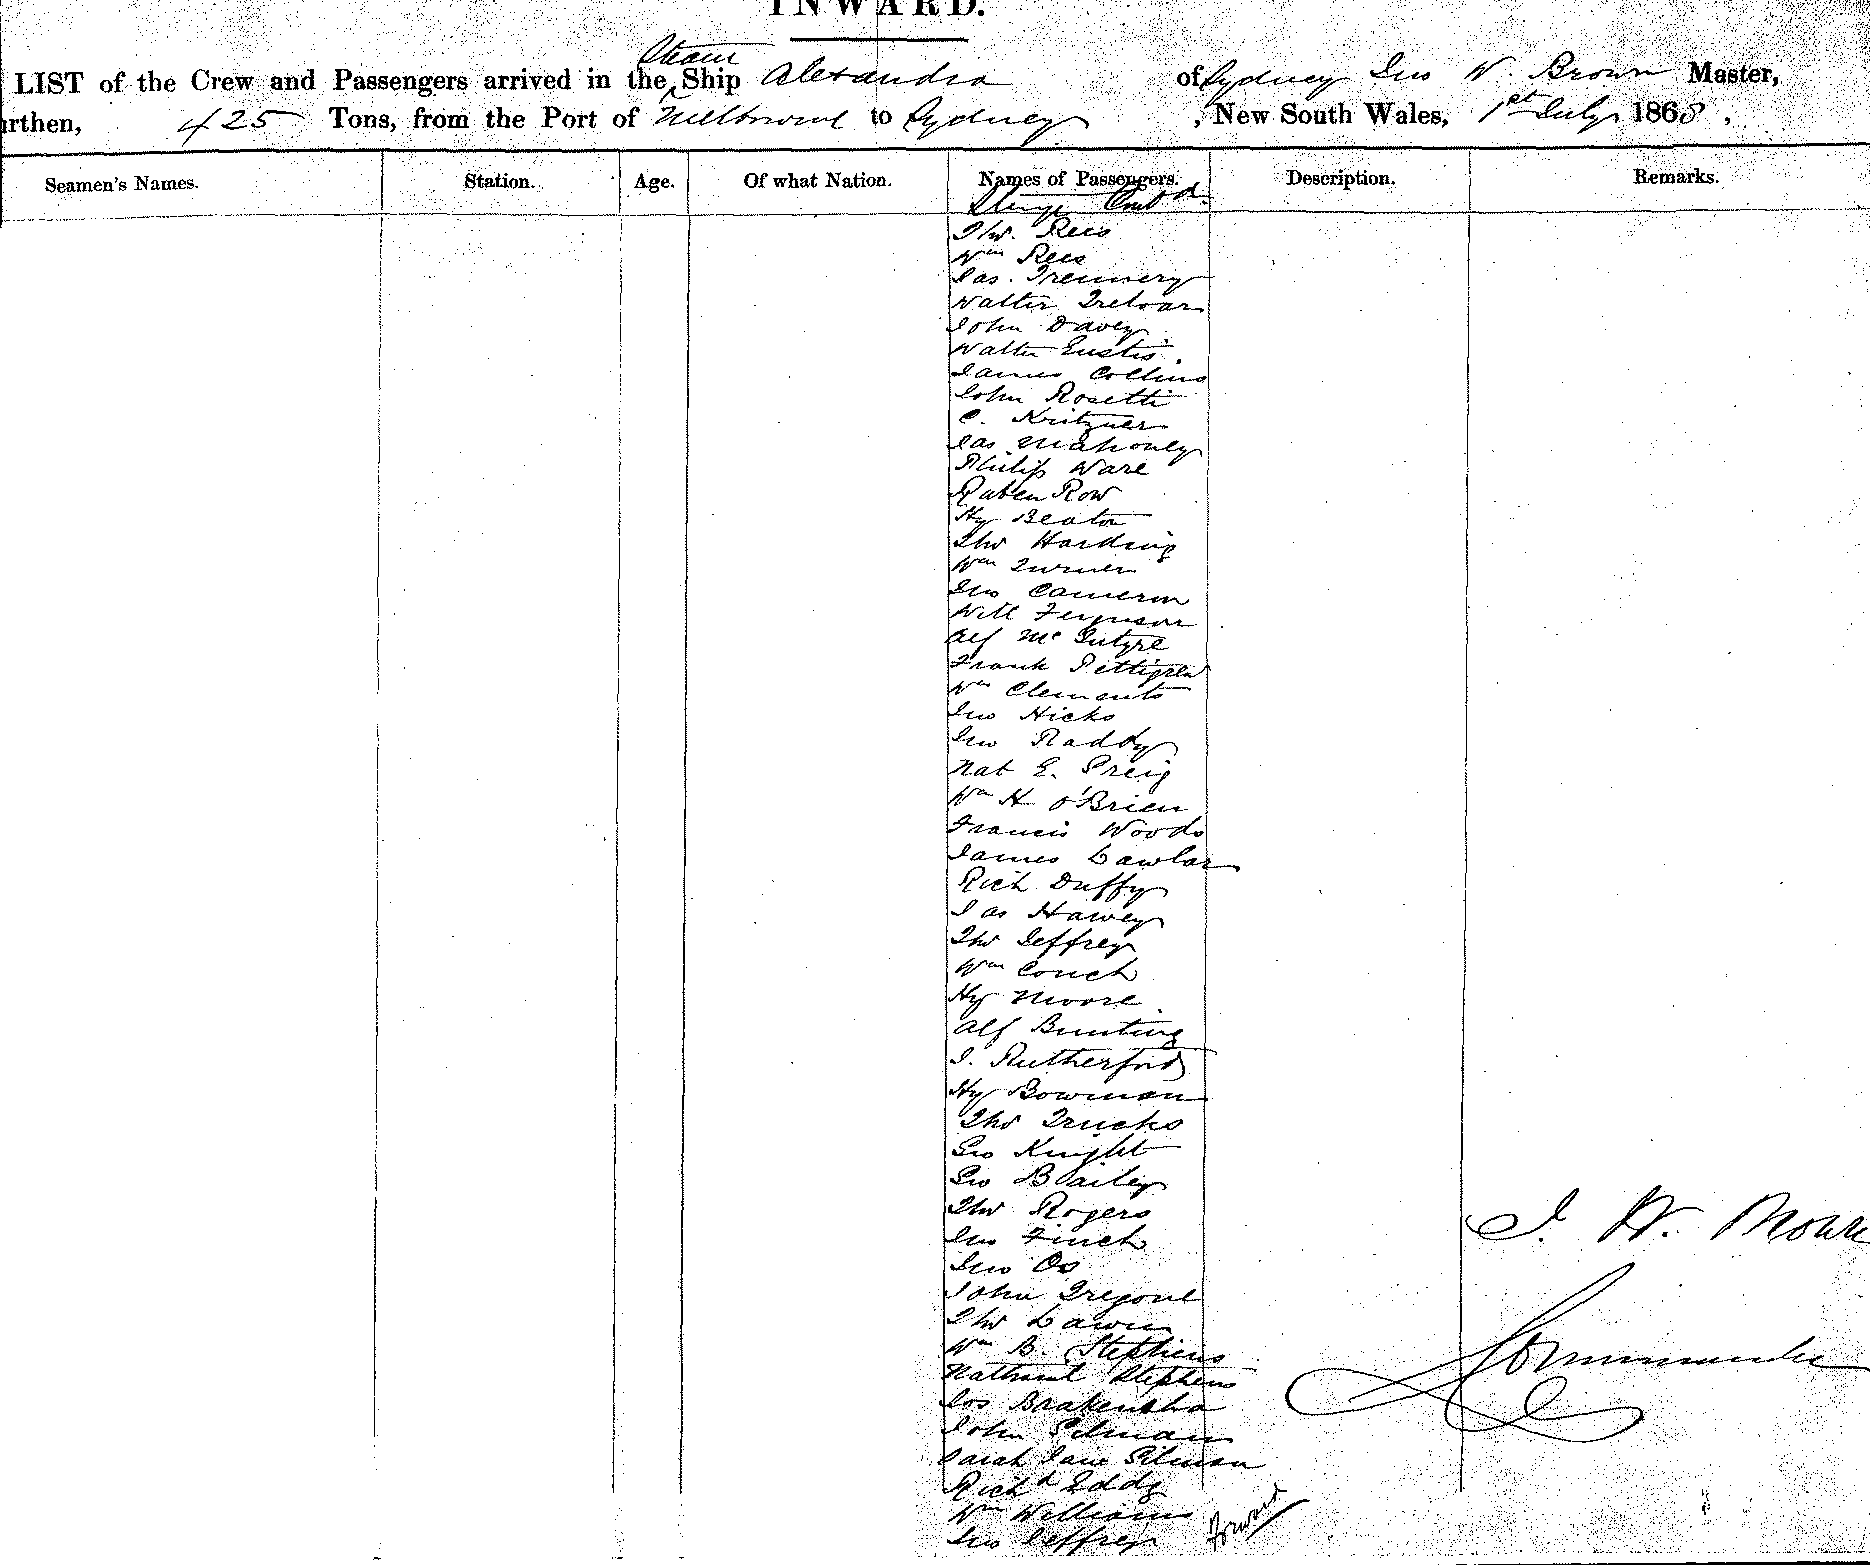 INWARD.
LIST of the Crew and Passengers arrived in the Steam Ship Alexandra of Sydney Jno W. Brown Master,
rthen, 425 Tons, from the Port of Melbourne to Sydney, New South Wales, 1st July 1868,
Seamen's Names. Station. Age. Of what Nation. Names of Passengers. Description. Remarks.
Contd
Tho. Rees
Wm Rees
Jas. Trennery
Walter Treloar
John Davey
Walter Eustis
James Collins
John Rosetti
C. Kritzner
Jas Mahoney
Philip Ware
Ruben Row
Hy Beaton
Tho Harding
Wm Turner
Jno Cameron
Will Ferguson
Alf McIntyre
Frank Pettigrew
Wm Clements
Jno Hicks
Jno Raddy
Nat E. Greig
Wm H O'Brien
Francis Woods
James Lawlor
Rich Duffy
Jas Harvey
Tho Jeffrey
Wm Couch
Hy Moore
Alf Bunting
J. Rutherford
Hy Bowman
Tho Trucks
Geo Knight
Geo Bailey
Tho Rogers
Jno Finch
Jno
John Tregone
Tho
Wm B. Stephens
Nathanl Stephens
Jos Brakensha
John Gilman
Sarah Jane Gilman
Richd Eddy
Wm Williams
Jno Jeffrey
Forward
J. W. Brown
Commander